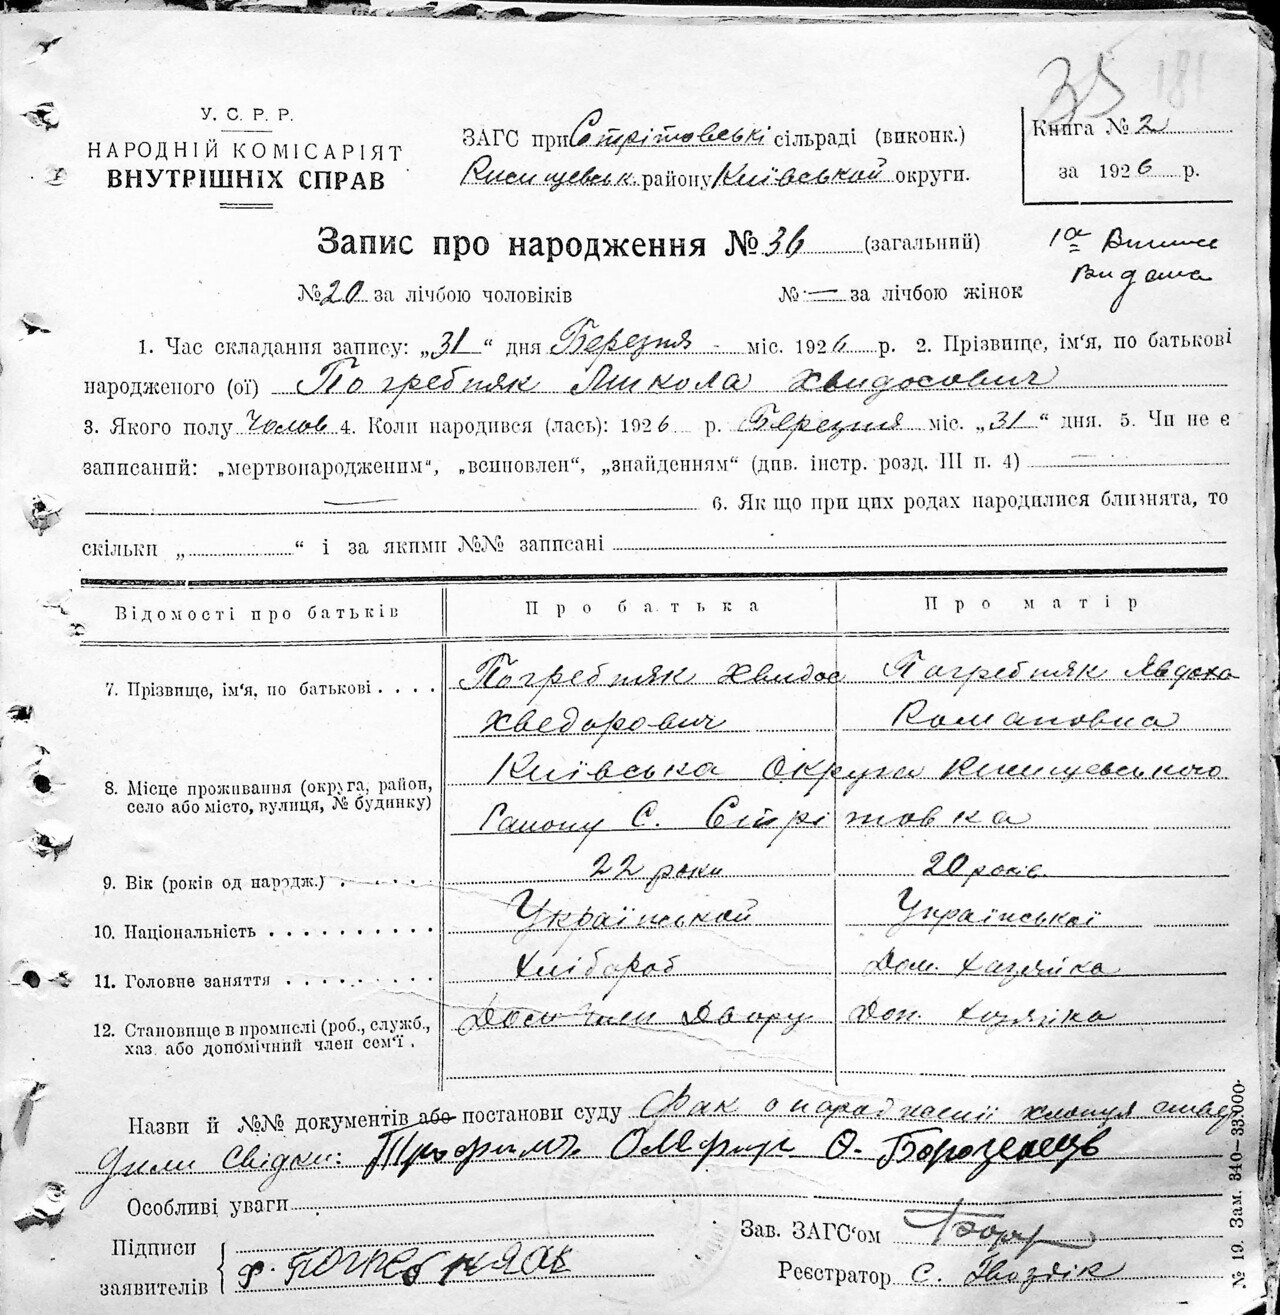 35 181
У. С. Р. Р.
НАРОДНІЙ КОМІСАРІЯТ
ВНУТРІШНІХ СПРАВ
ЗАГС при Стрітовські сільраді (виконк.)
Кисищевськ. району Київської округи.
Книга № 2
за 1926 р.
Запис про народження № 36 (загальний)
1а Виписка
видана
№ 20 за лічбою чоловіків № — за лічбою жінок
1. Час складання запису: „31“ дня Березня міс. 1926 р. 2. Прізвище, ім‘я, по батькові
народженого (ої) Погребняк Микола Хвидосович
3. Якого полу Чолов 4. Коли народився (лась): 1926 р. Березня міс. „31“ дня. 5. Чи не є
записаний: „мертвонародженим“, „всиновлен“, „знайденням“ (див. інстр. розд. III п. 4) —
— 6. Як що при цих родах народилися близнята, то
скільки „ “ і за якими №№ записані
Відомості про батьків Про батька Про матір
7. Прізвище, ім‘я, по батькові . . . . Погребняк Хвидос Погребняк Явдоха
Хведорович Романовна
8. Місце проживання (округа, район,
село або місто, вулиця, № будинку)
Київська Округа Кисищевського
Району С. Стрітовка
9. Вік (років од народж.) . . . . . 22 роки 20 років
10. Національність . . . . . . . . . . Української Української
11. Головне заняття . . . . . . . . Хлібороб Дом. Хазяйка
12. Становище в промислі (роб., служб.,
хаз. або допомічний член сем‘ї .
Двору Дом. Хозяйка
Назви й №№ документів або постанови суду Фак о народженні хлопця стверд
дили Свідки: Трофим Ф. Бороденець
Особливі уваги
Підписи
заявителів
Ф. Погребняк
Зав. ЗАГС‘ом
Реєстратор С. Гвоздік
№ 19. Зам. 340—33.000.